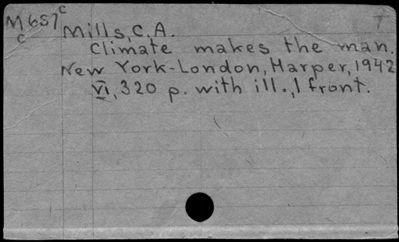 M657c Mills, C.A.
c Climate makes the man.
New York-London, Harper, 1942
VI, 320 p. with ill., 1 front.